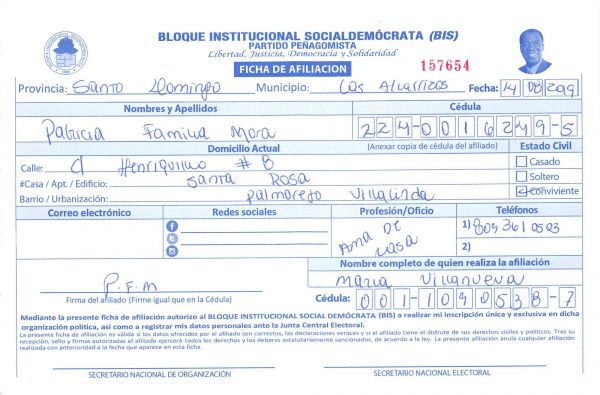 BLOQUE INSTITUCIONAL SOCIALDEMÓCRATA (BIS)
PARTIDO PEÑAGOMISTA
Libertad, Justicia, Democracia y Solidaridad
FICHA DE AFILIACION
157654
Provincia: Santo Domingo Municipio: Los Alcarrizos Fecha: 14 08 299
Nombres y Apellidos Cédula
Patricia Familia Mora 224-0016249-5
Domicilio Actual (Anexar copia de cédula del afiliado) Estado Civil
Calle: C/ Henriquillo # 8 Casado
#Casa / Apt. / Edificio: Santa Rosa Soltero
Barrio / Urbanización: Palmarejo Villalinda Conviviente
Correo electrónico Redes sociales Profesión/Oficio Teléfonos
Ama De Casa 1) 809 361 0503
2)
Nombre completo de quien realiza la afiliación
P.F.M Maria Villanueva
Firma del afiliado (Firme igual que en la Cédula) Cédula: 001-1090538-7
Mediante la presente ficha de afiliación autorizo al BLOQUE INSTITUCIONAL SOCIAL DEMÓCRATA (BIS) a realizar mi inscripción única y exclusiva en dicha
organización política, así como a registrar mis datos personales ante la Junta Central Electoral.
La presente ficha de afiliación es válida si los datos ofrecidos por el afiliado son correctos, las declaraciones veraces y si el afiliado tiene el disfrute de sus derechos civiles y políticos. Tras su
recepción, sello y firmas autorizadas el afiliado ejercerá todos los derechos y los deberes estatutariamente sancionados, de acuerdo a la ley. La presente afiliación anula cualquier afiliación
realizada con anterioridad a la fecha que aparece en esta ficha.
SECRETARIO NACIONAL DE ORGANIZACIÓN SECRETARIO NACIONAL ELECTORAL